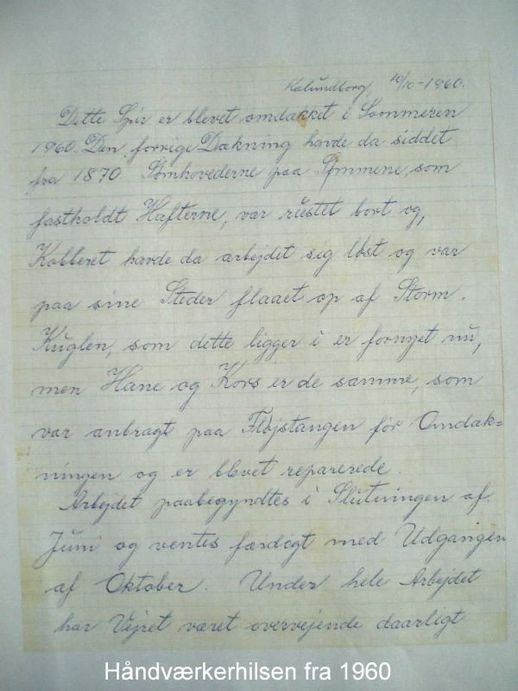 Kalundborg, 10/10-1960.
Dette Spir er blevet omdækket i Sommeren
1960. Den forrige Dækning havde da siddet
fra 1870 Sömhovederne paa Sömmene, som
fastholdt Hafterne, var rustet bort og,
Kobberet havde da arbejdet sig löst og var
paa sine Steder flaaet op af Storm.
Kuglen, som dette ligger i er fornyet nu,
men Hane og Kors er de samme, som
var anbragt paa Flöjstangen för Omdæk=
ningen og er blevet reparerede.
Arbejdet paabegyndtes i Slutningen af
Juni og ventes færdigt med Udgangen
af Oktober. Under hele Arbejdet
har Vejret været overvejende daarligt
Håndværkerhilsen fra 1960